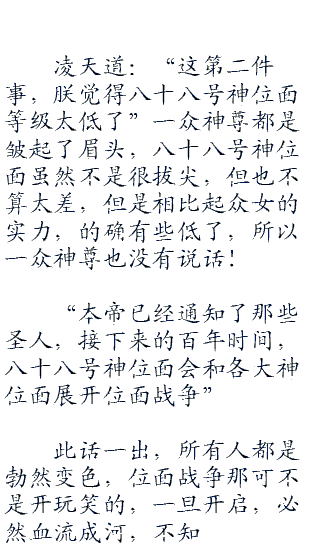 凌天道：“这第二件
事，朕觉得八十八号神位面
等级太低了”一众神尊都是
皱起了眉头，八十八号神位
面虽然不是很拔尖，但也不
算太差，但是相比起众女的
实力，的确有些低了，所以
一众神尊也没有说话！
“本帝已经通知了那些
圣人，接下来的百年时间，
八十八号神位面会和各大神
位面展开位面战争”
此话一出，所有人都是
勃然变色，位面战争那可不
是开玩笑的，一旦开启，必
然血流成河，不知